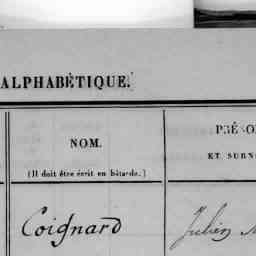 ALPHABÉTIQUE.
NOM.
(Il doit être écrit en bâtarde.)
PRÉNO
ET SURN
Coignard
Julien